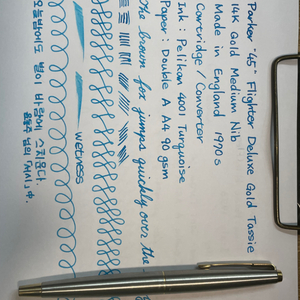 Parker "45" Flighter Deluxe Gold Tassie
14K Gold Medium Nib
Made in England 1970s
Cartridge / Converter
Ink : Pelikan 4001 Turquoise
Paper : Double A A4 90 gsm
The brown fox jumps quickly over the
wetness
오늘밤에도 별이 바람에 스치운다.
윤동주 님의 「서시」 中